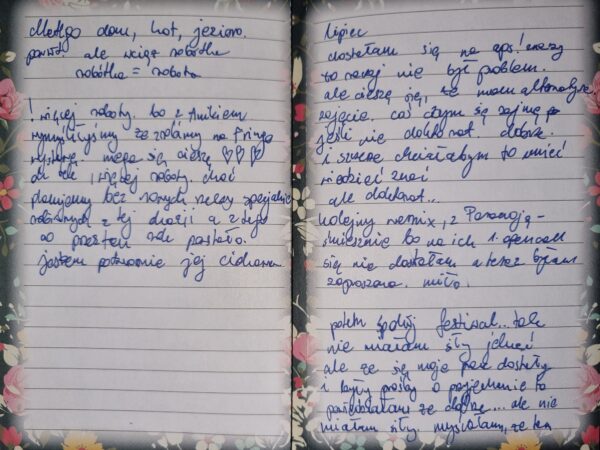 dlatego dom, kot, jezioro.
ale wciąż robótka
robótka = robota
! więcej roboty. bo z Anikiem
wymyśliłyśmy że zrobimy na Fringe
wystawę. mega się cieszę ♡♡♡
ale tak, więcej roboty. choć
planujemy bez nowych rzeczy specjalnie
robionych z tej okazji a z tego
co przez ten rok powstało.
jestem potwornie jej ciekawa
Lipiec
dostałam się na aps! znaczy
to raczej nie był problem.
ale cieszę się, że mam alternatywę
zajęcia. coś czym się zajmę
jeśli nie doktorat. dobrze.
i szczerze chciałabym to umieć
wiedzieć znać
ale doktorat...
kolejny wernix, z Paranoją -
śmiesznie bo na ich 1. opencall
się nie dostałam a teraz byłam
zaproszona. miło.
potem festiwal... tak
nie miałam siły jechać
ale że się moje prace dostały
i były prośby o pojechanie to
że dobrze... ale nie
miałam siły. myślałam, że ten